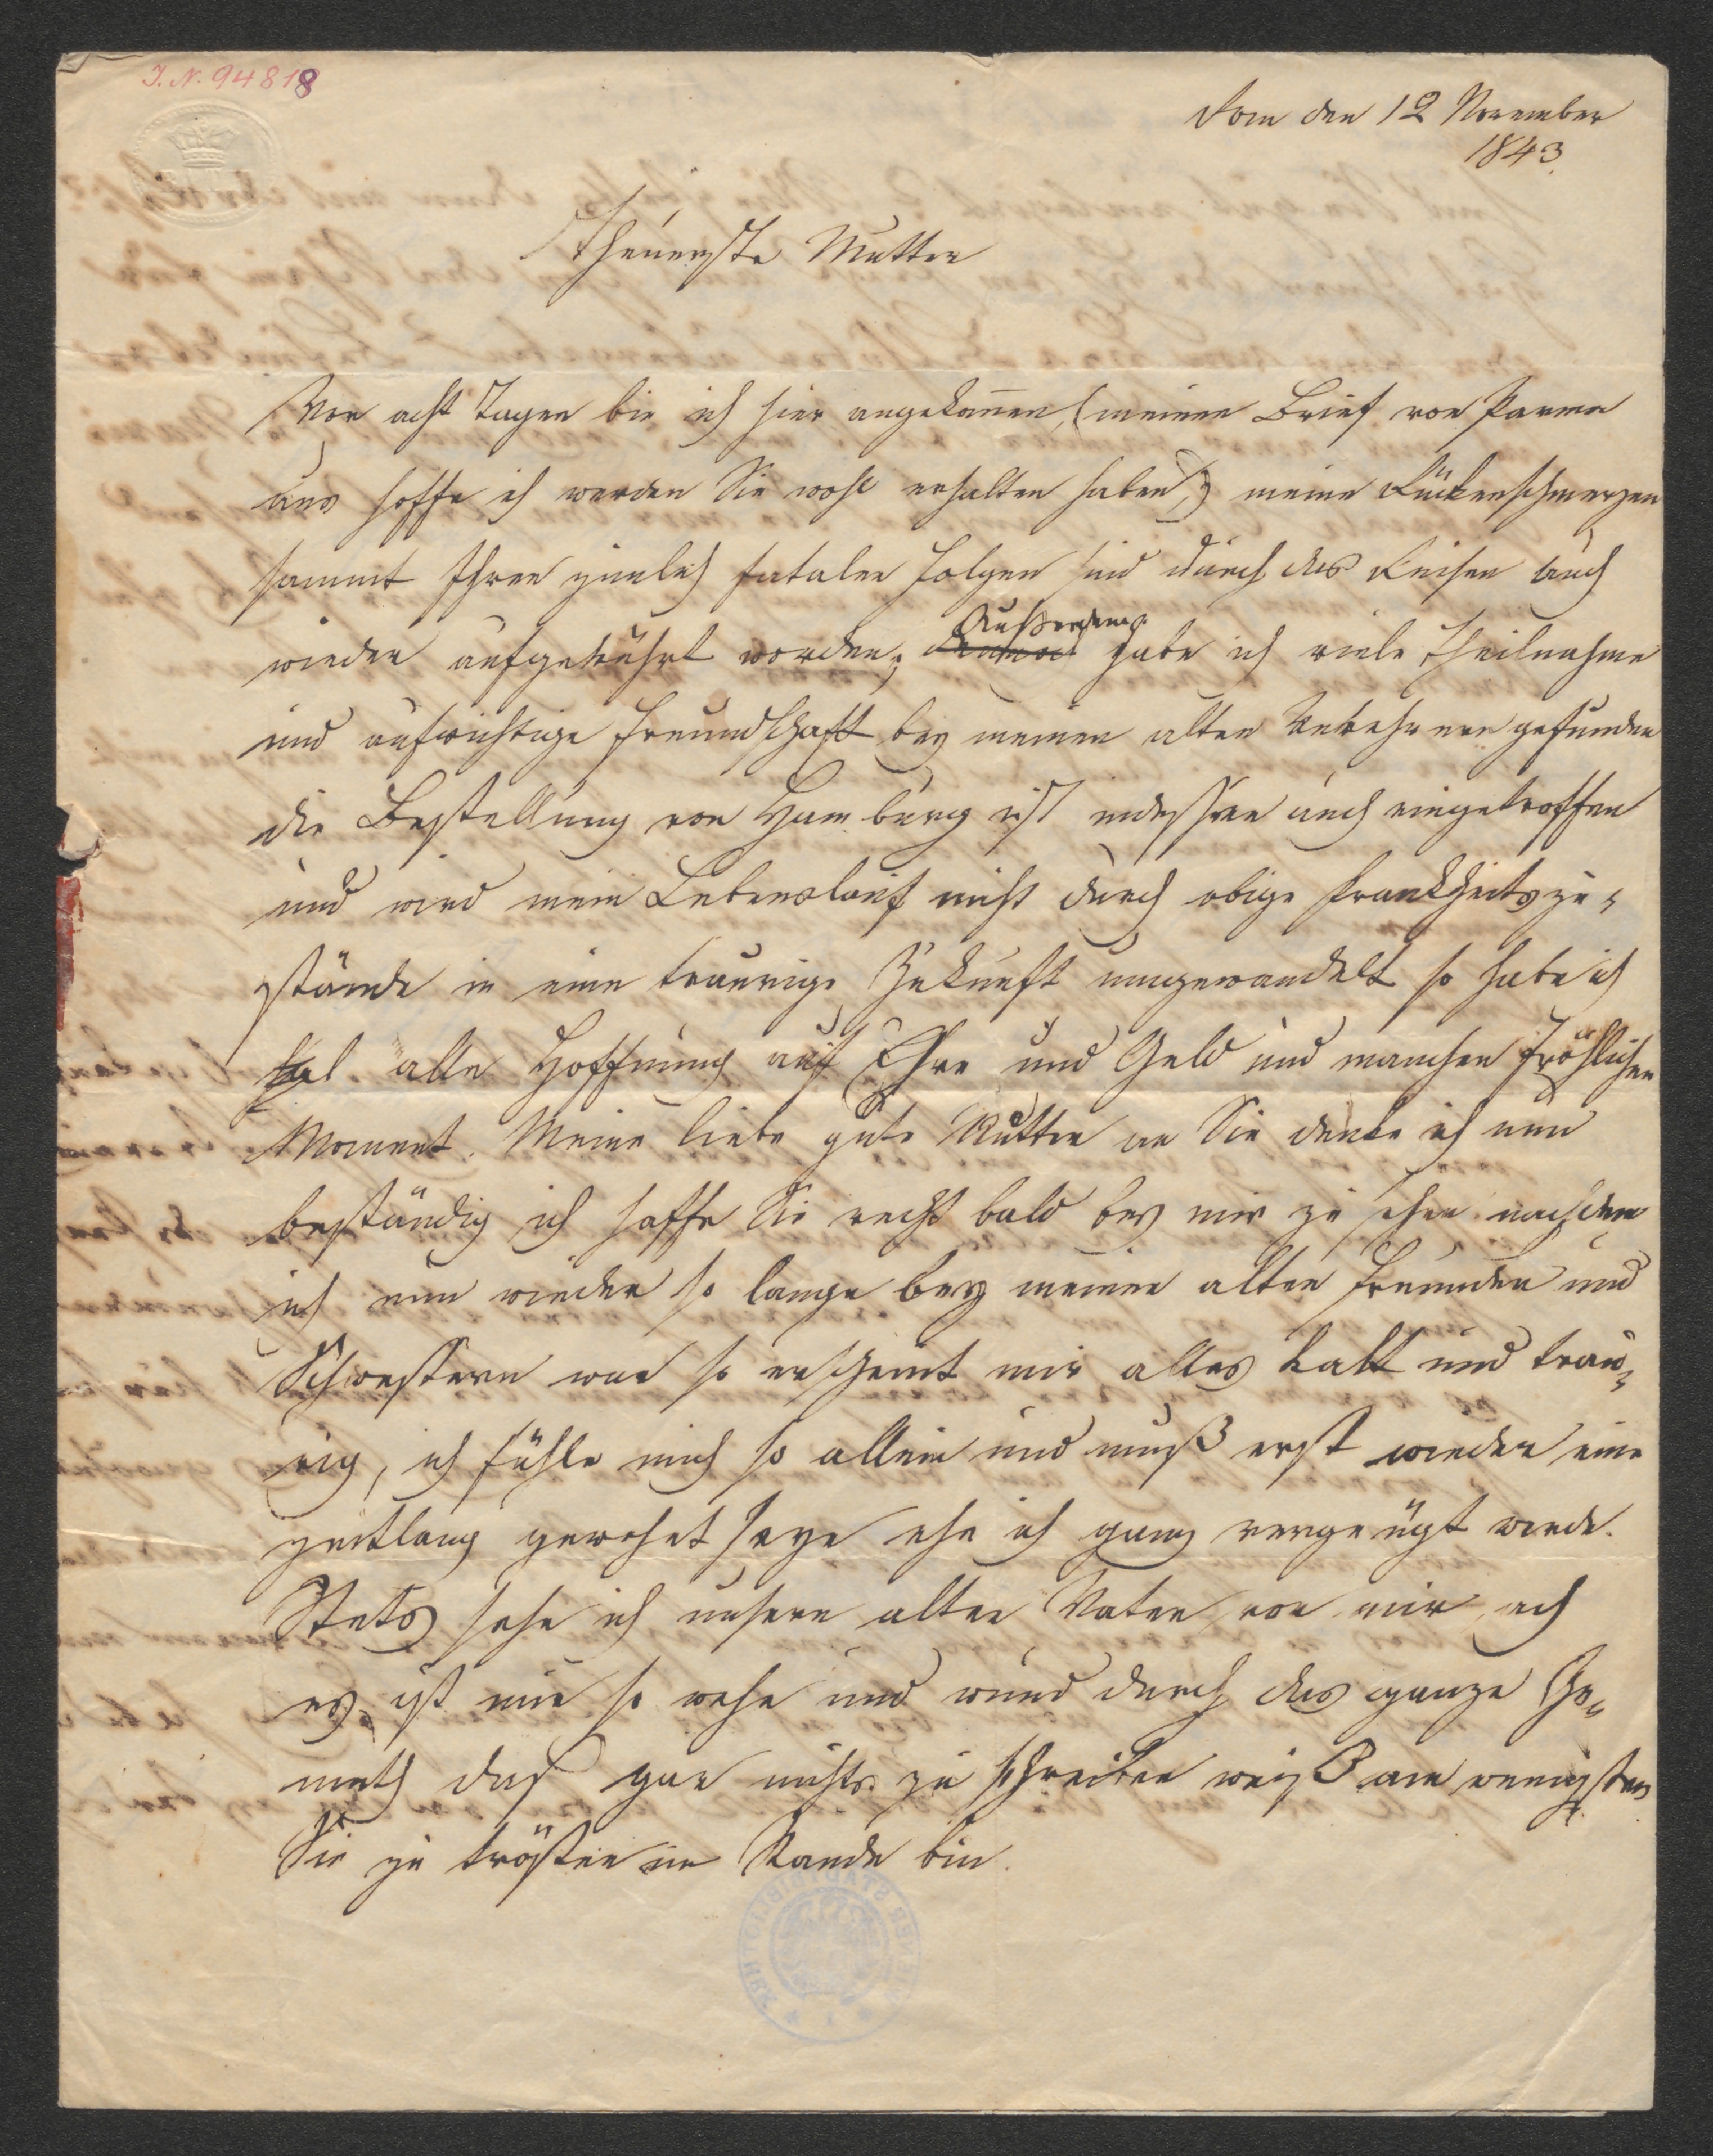 I.N. 94818
Rom den 12 November
1843.
Theuerste Mutter
Vor acht Tagen bin ich hier angekommen, (meinen Brief von Parma
aus hoffe ich werden Sie wohl erhalten haben,) meine Rückenschmerzen
sammt Ihren zimlich fatalen Folgen sind durch das Reisen auch
Außerdem
wieder aufgerührt worden; habe ich viele Theilnahme
und aufrichtige Freundschaft bey meinen alten gefunden
die Bestellung von Hamburg ist indessen auch eingetroffen
und wird mein Lebenslauf nicht durch obige Krankheitszu-
stände in eine traurige Zukunft umgewandelt so habe ich
alle Hoffnung auf Ehre und Geld und manchen fröhlichen
Moment. Meine liebe gute Mutter an Sie denke ich nun
beständig ich hoffe Sie recht bald bey mir zu sehen nachdem
ich nun wieder so lange bey meinen alten Freunden und
Schwestern war so erscheint mir alles kalt und trau-
rig, ich fühle mich so allein und muß erst wieder eine
zeitlang gewohnt seyn ehe ich ganz vergnügt werde.
Stets sehe ich unsern alten Vater vor mir ach
es ist mir so wehe und wund durch das ganze Ge-
müth daß gar nichts zu schreiben weiß am wenigsten
Sie zu trösten im Stande bin.
WIENER STADTBIBLIOTHEK